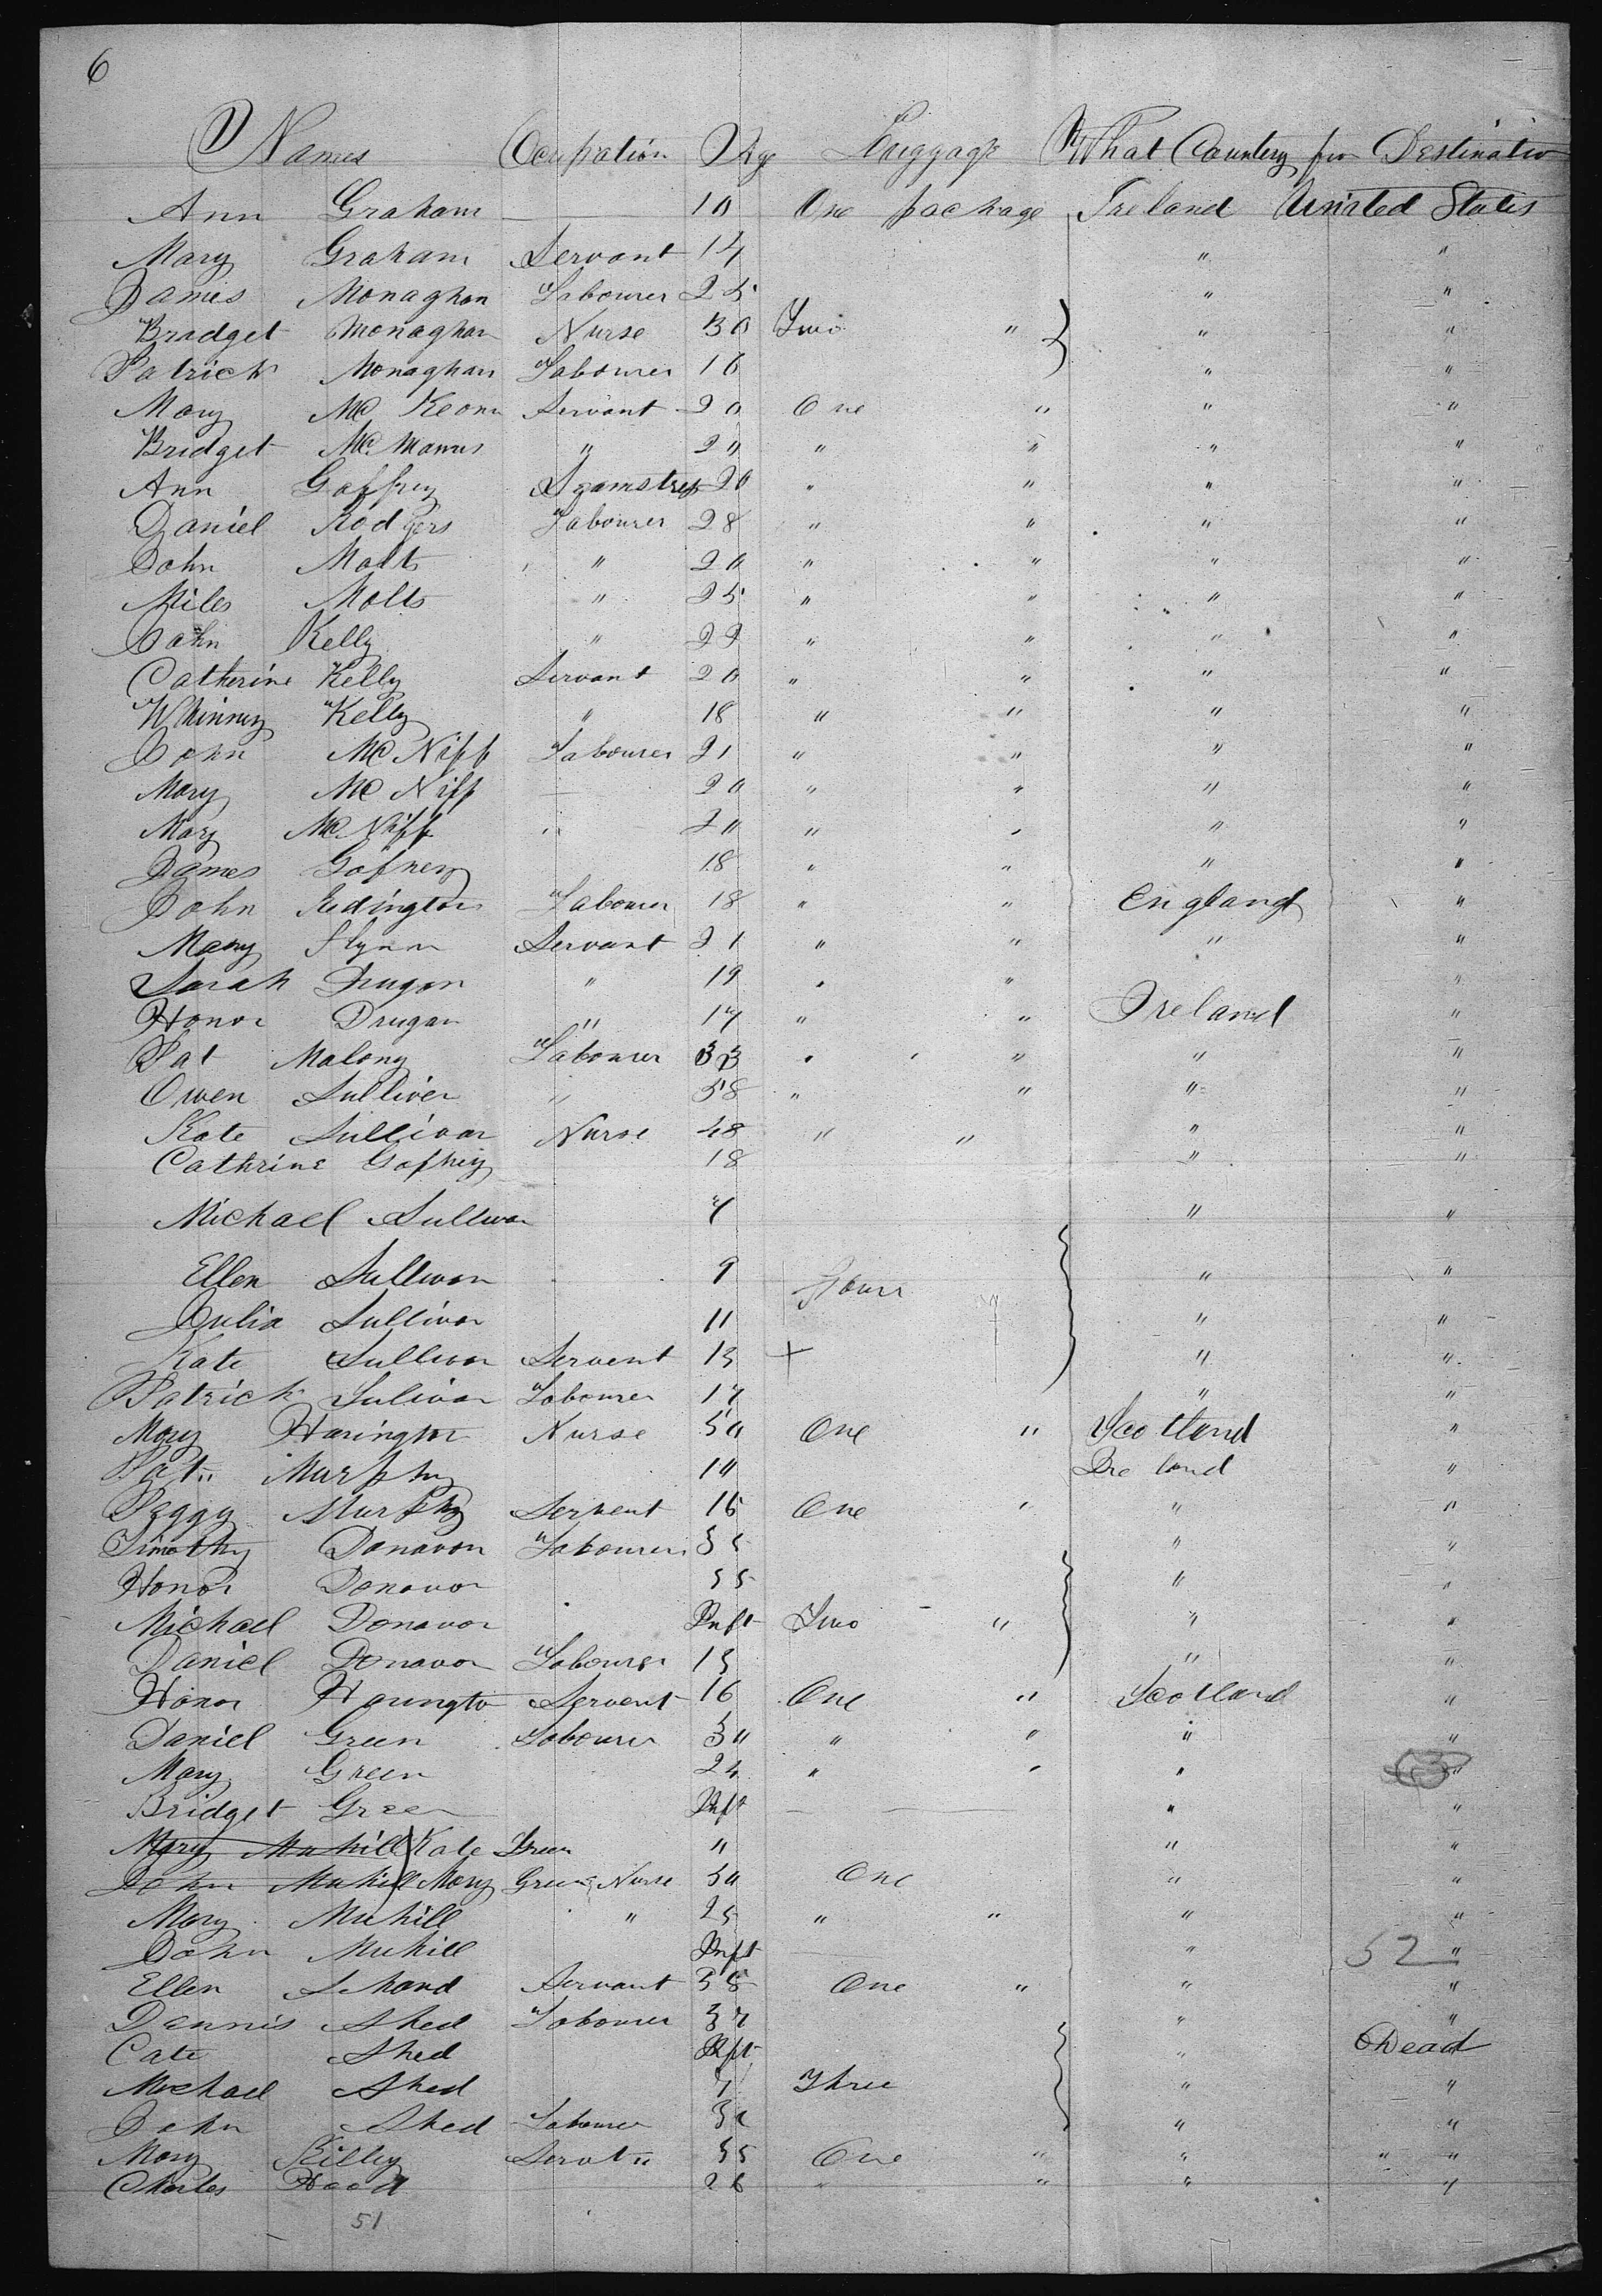 6
Names Ocupation Age Luggage What Country from Destination
Ann Graham — 10 One package Ireland United States
Mary Graham Servant 14 " "
James Monaghan Labourer 25 " "
Bradget Monaghan Nurse 30 Two " " "
Patrick Monaghan Labourer 16 " "
Mary Mc Keonn Servant 20 One " " "
Bridget Mc Manus " 20 " " " "
Ann Gaffrey Seamstress 20 " " " "
Daniel Rodgers Labourer 28 " " " "
John Molts " 20 " " " "
Miles Molts " 25 " " " "
John Kelly " 22 " " " "
Catherine Kelly Servant 20 " " " "
Whinney Kelly " 18 " " " "
John Mc Niff Labourer 21 " " " "
Mary Mc Niff — 20 " " " "
Mary Mc Niff " 20 " " " "
James Gafney 18 " " " "
John Redington Labourer 18 " " England "
Mary Flynn Servant 21 " " " "
Sarah Drugan " 19 " " "
Honor Drugan " 17 " " Ireland "
Pat Malony Labourer 33 " " " "
Owen Sulliven " 58 " " " "
Kate Sullivan Nurse 48 " " " "
Cathrine Gafney 18 " "
Michael Sullivan 7 " "
Ellen Sullivan 9 Four " "
Julia Sullivan 11 " "
Kate Sullivan Servent 13 + " "
Patrick Sulivan Labourer 17 " "
Mary Harington Nurse 50 One " Scotland "
Pat" Murphy 10 Ireland "
Peggy Murphy Servent 16 One " " "
Timothy Donavon Labourer 35 " "
Honor Donavon 35 " "
Michael Donavon Inft Two " " "
Daniel Donavon Labourer 13 " "
Honor Harington Servent 16 One " Scotland "
Daniel Green Labourer 30 " " " "
Mary Green 24 " " " "
Bridget Green Inft — " "
Mary Muhill Kate Green " " "
John Muhill Mary Green Nurse 50 One " "
Mary Muhill " 25 " " " "
John Muhill Inft " 52 "
Ellen Shand Servant 38 One " " "
Dennis Shed Labourer 37 " "
Cate Shed Inft " Dead
Michael Shed 7 Three " "
John Shed Labourer 32 " "
Mary Killey Servt" 35 One " " " "
Charles Hood 26 " " " "
51